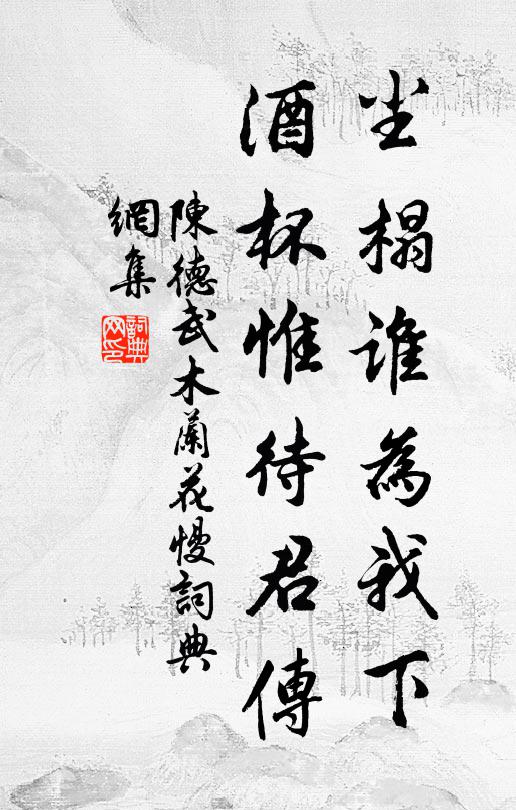 尘榻谁為我下
酒杯惟待君傳
陳德武木蘭花慢詞典
網集
詞典
网印